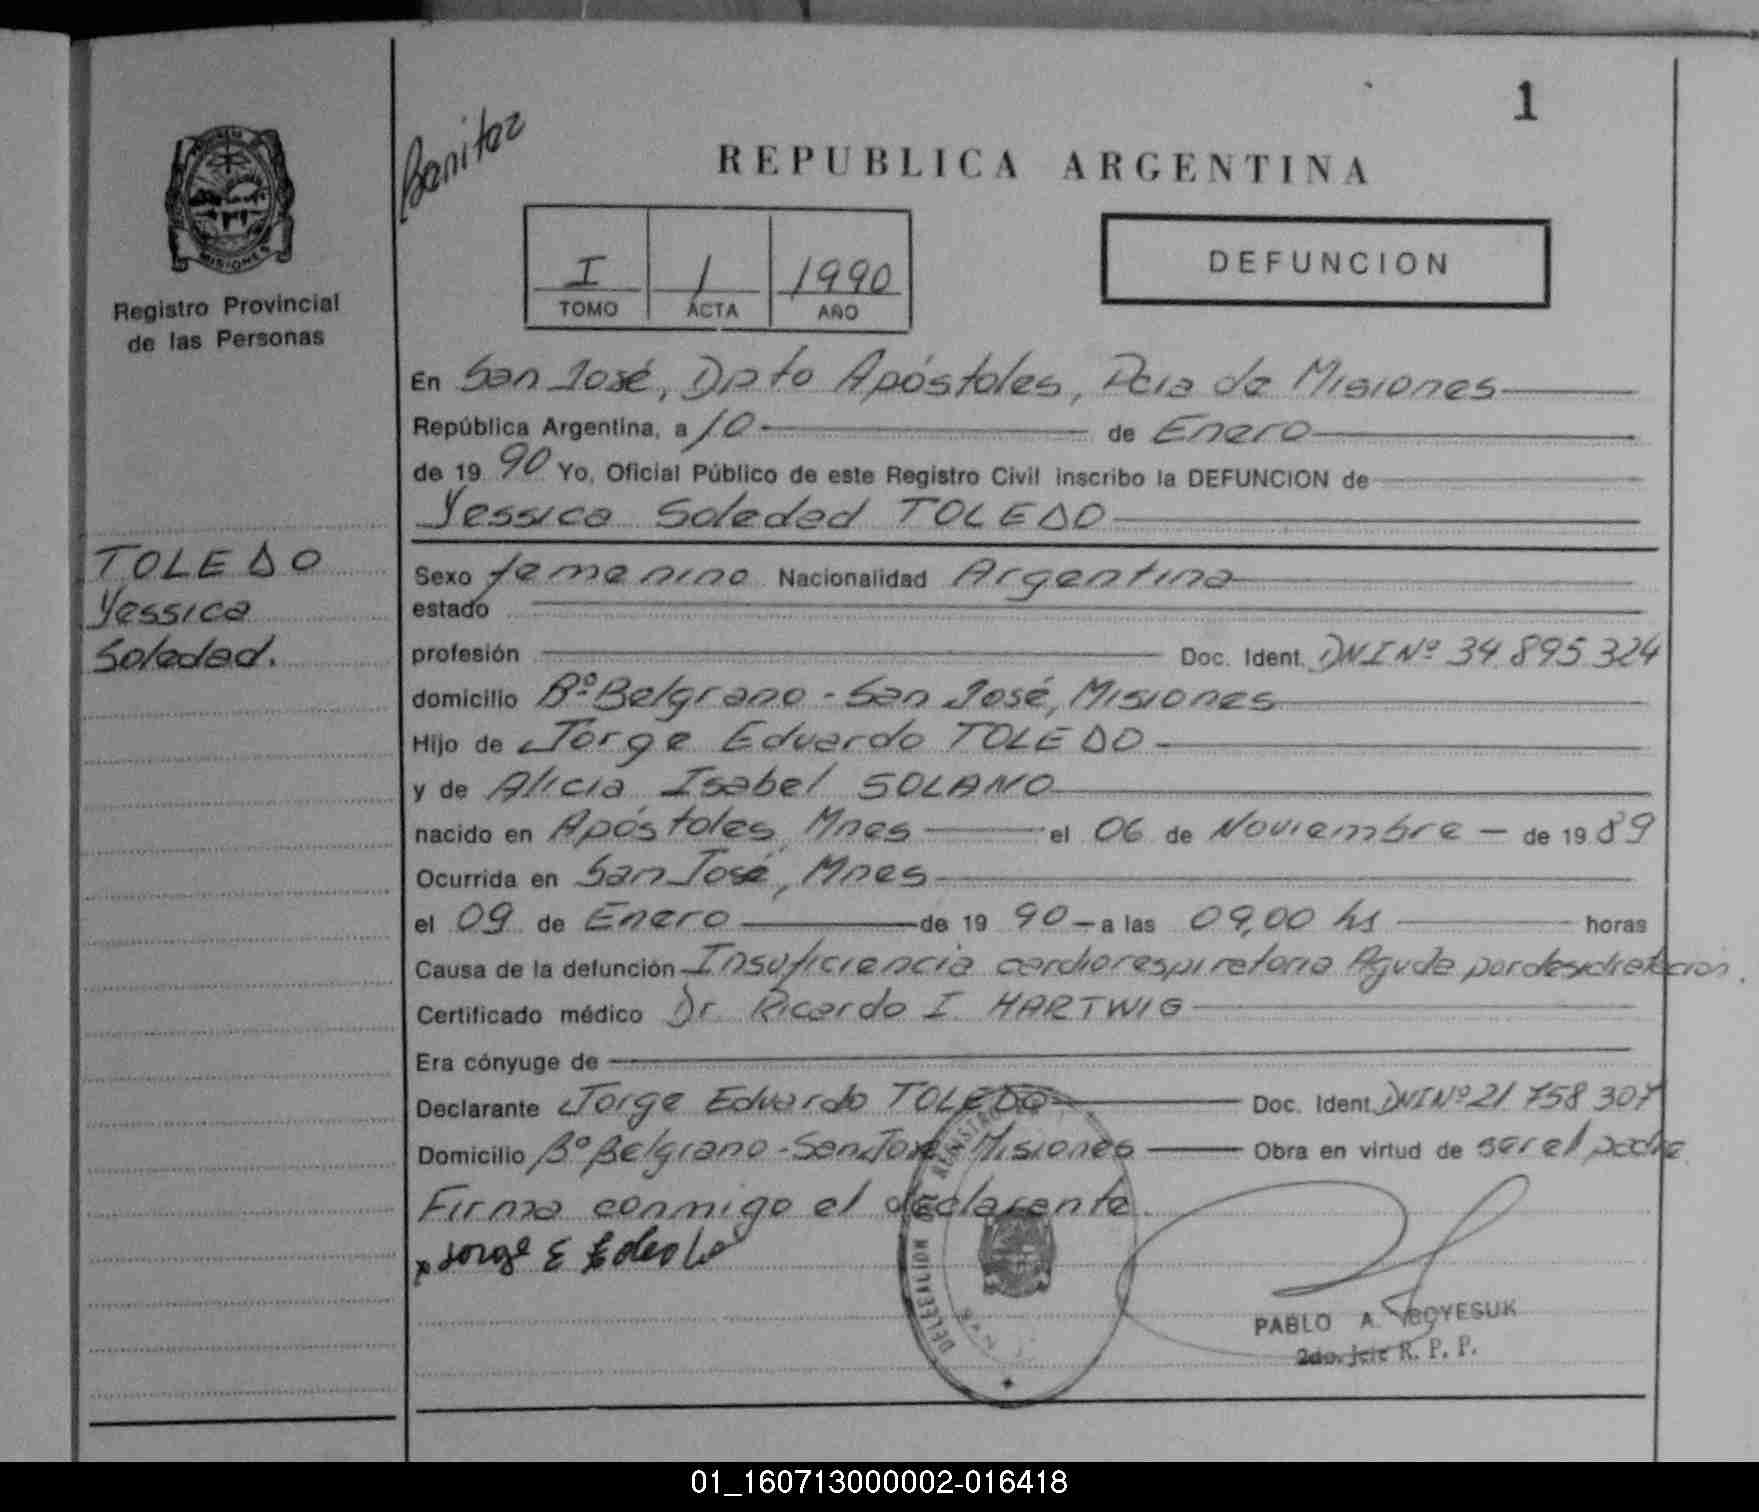 1
Benitez
REPUBLICA ARGENTINA
MISIONES
Registro Provincial
de las Personas
I 1 1990
TOMO ACTA AÑO
DEFUNCION
En San José, Dpto Apóstoles, Pcia de Misiones
República Argentina, a 10 de Enero
de 19 90 Yo, Oficial Público de este Registro Civil inscribo la DEFUNCION de
Yessica Soledad TOLEDO
TOLEDO
Yessica
Soledad.
Sexo femenino Nacionalidad Argentina
estado
profesión Doc. Ident. DNI Nº 34 895 324
domicilio Bº Belgrano - San José, Misiones
Hijo de Jorge Eduardo TOLEDO
y de Alicia Isabel SOLANO
nacido en Apóstoles, Mnes el 06 de Noviembre de 19 89
Ocurrida en San José, Mnes
el 09 de Enero de 19 90 a las 09,00 hs horas
Causa de la defunción Insuficiencia cardiorespiratoria Aguda por desidratacion.
Certificado médico Dr. Ricardo I. HARTWIG
Era cónyuge de
Declarante Jorge Eduardo TOLEDO Doc. Ident. DNI Nº 21 758 307
Domicilio Bº Belgrano - San José Misiones Obra en virtud de ser el padre
Firma conmigo el declarante.
x Jorge E Toledo
PABLO A.
2do. Jefe R. P. P.
01_160713000002-016418